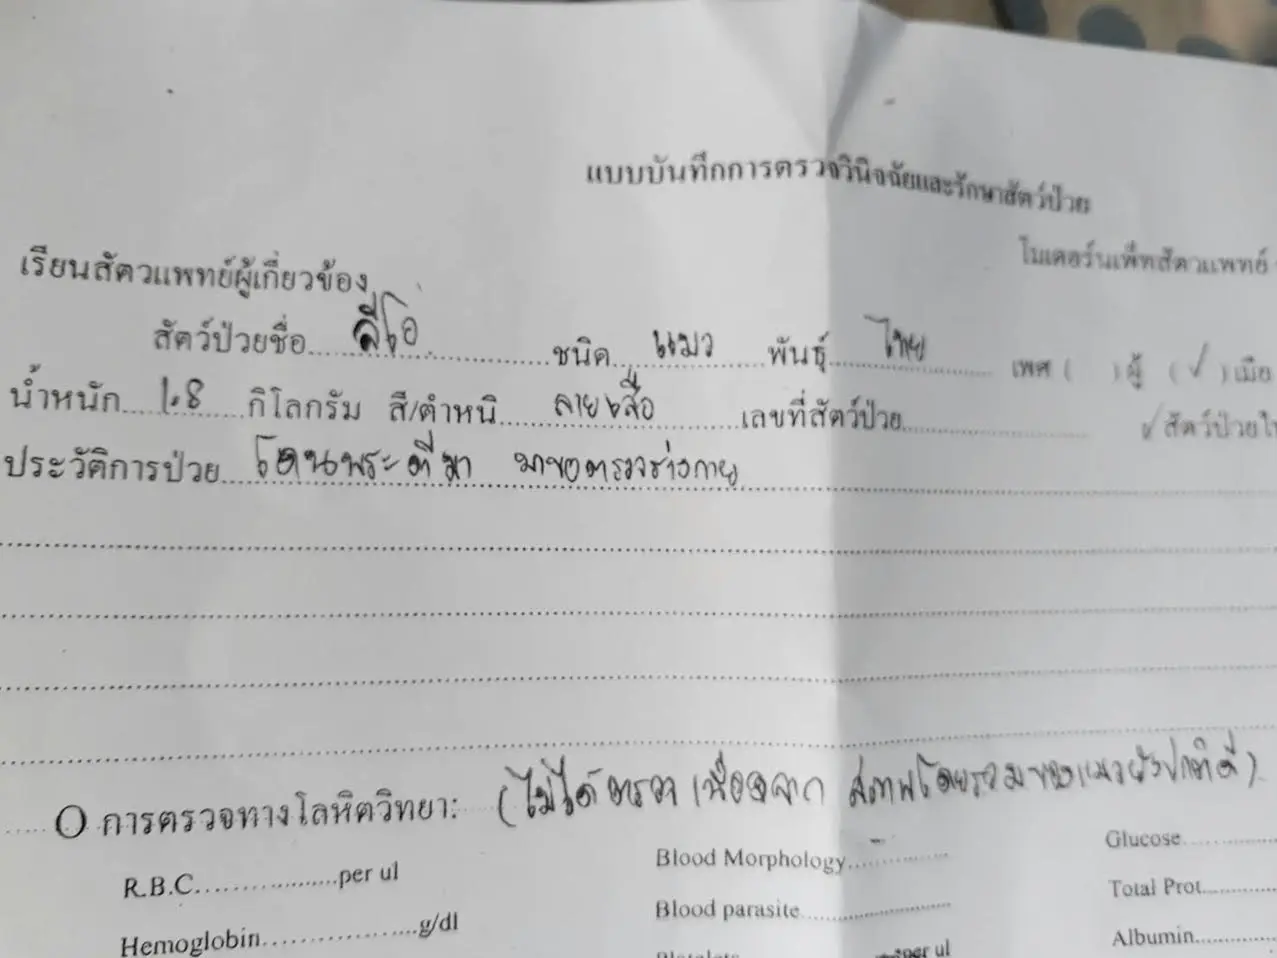 แบบบันทึกการตรวจวินิจฉัยและรักษาสัตว์ป่วย
โมเดอร์นเพ็ทสัตวแพทย์
เรียนสัตวแพทย์ผู้เกี่ยวข้อง
สัตว์ป่วยชื่อ....ลีโอ............ชนิด....แมว......พันธุ์.....ไทย........ เพศ ( )ผู้ (✓)เมีย
น้ำหนัก...1.8.....กิโลกรัม สี/ตำหนิ.....ลายเสือ.........เลขที่สัตว์ป่วย.................... ✓สัตว์ป่วยใ
ประวัติการป่วย...โดนพระตีมา มาขอตรวจร่างกาย
O การตรวจทางโลหิตวิทยา: (ไม่ได้ตรวจ เนื่องจาก สภาพโดยรวมของแมวยังปกติดี)
R.B.C..................per ul Blood Morphology............... Glucose..............
Hemoglobin..................g/dl Blood parasite.................. Total Prot...........
Platelets per ul Albumin............